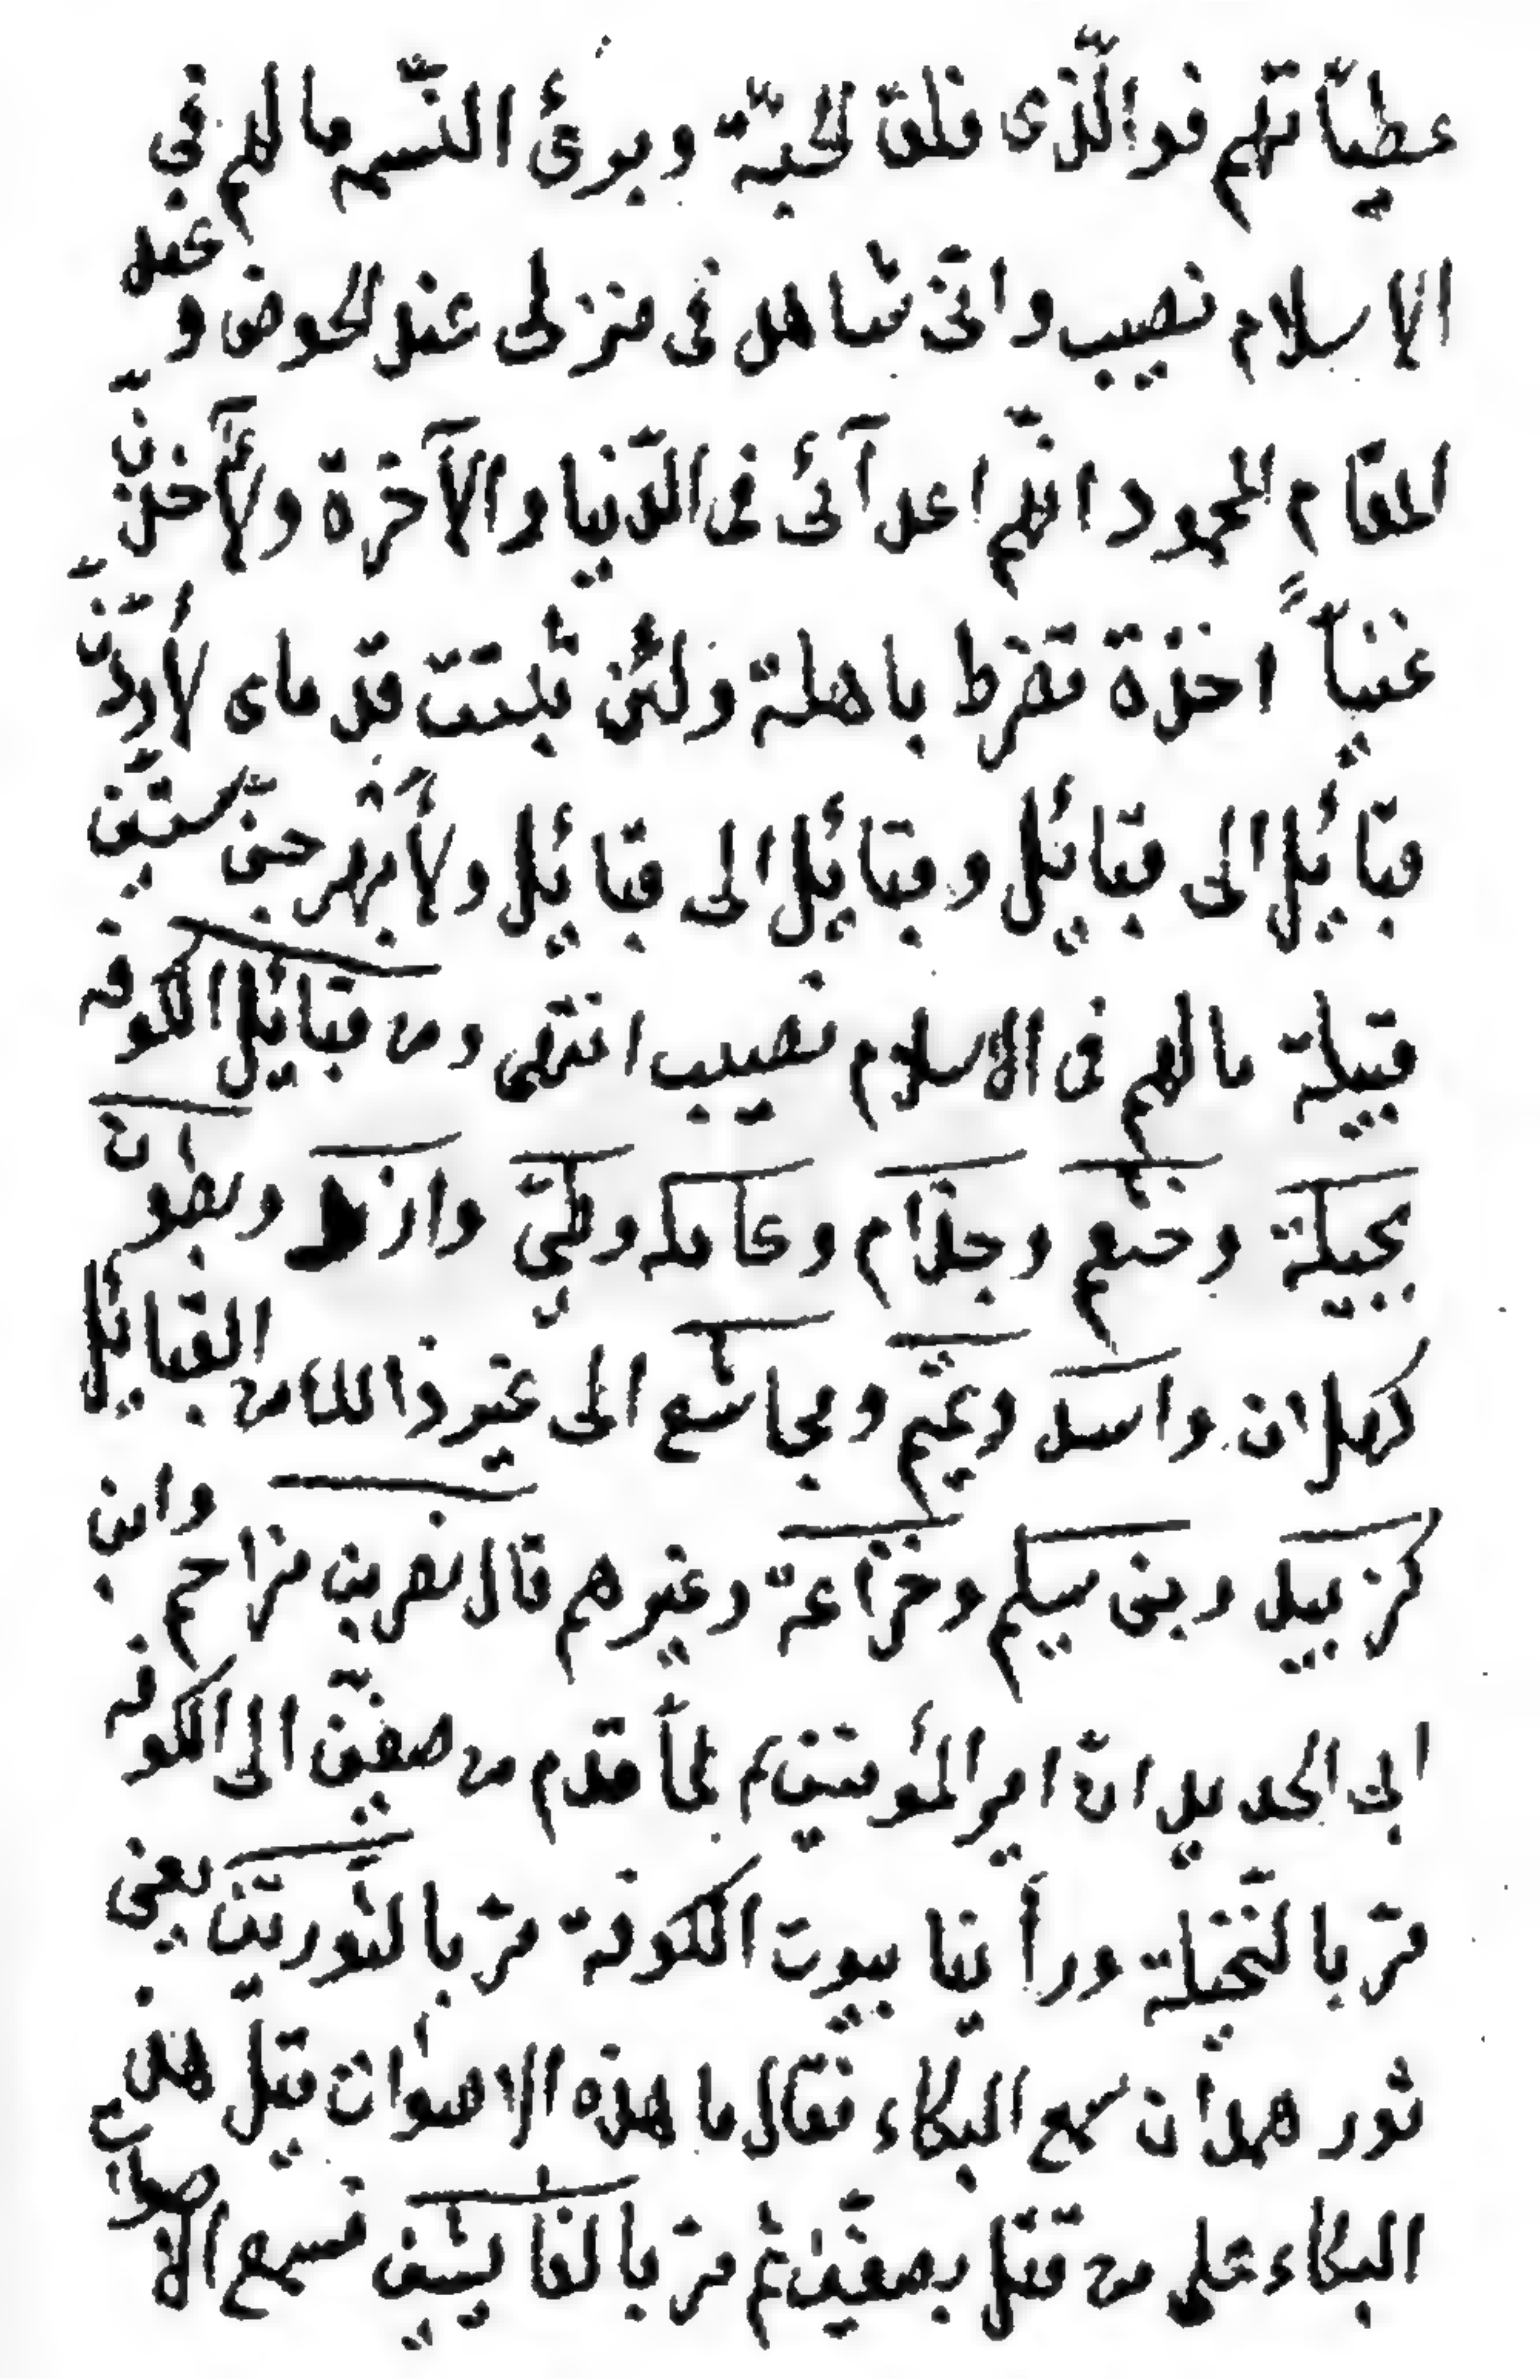 عطيّاتهم فوالّذى فلق الحبّة وبرئ النّسمه مالهم فى
الاسلام نصيب وانّى شاهد فى منزلى عند الحوض و عند
المقام المحمود انّهم اعدآئى فى الدّنيا والآخرة ولآَخذنّ
غنيّاً اخذة تضرط باهلة ولئن ثبتت قدماى لأردّنّ
قبائيل الى قبائيل وقبائيل الى قبائيل ولأبهرجنّ ستّين
قبيلة مالهم فى الاسلام نصيب انتهى ومن قبائيل الكوفه
بجيلة وخثعم وجذام وعامله وطىّ وازد وبطون
كهلان واسد وتميم ومجاشع الى غير ذالك من القبائيل
كزبيد وبنى سليم وخزاعة وغيرهم قال نصر بن مزاحم وابن
ابى الحديد انّ امير المؤمنين ع لمّا قدم من صفّين الى الكوفه
مرّ بالنّخيلة ورأينا بيوت الكوفة مرّ بالثّوريّين يعنى
ثور همدان سمع البكاء فقال ما هذه الاصوات قيل هذه
البكاء على من قتل بصفّين ثم مرّ بالفايشين فسمع الاصوات